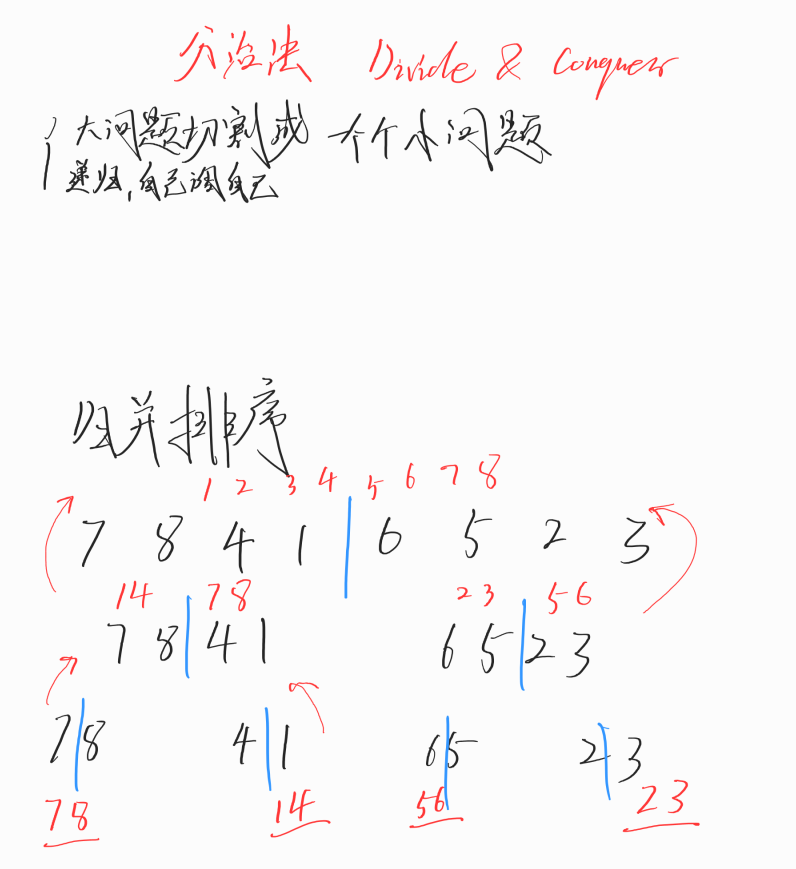 分治法 Divide & Conquer
大问题切割成 个个小问题
递归,自己调自己
归并排序
1 2 3 4 5 6 7 8
7 8 4 1 6 5 2 3
14 78 23 56
7 8 4 1 6 5 2 3
7 8 4 1 6 5 2 3
78 14 56 23